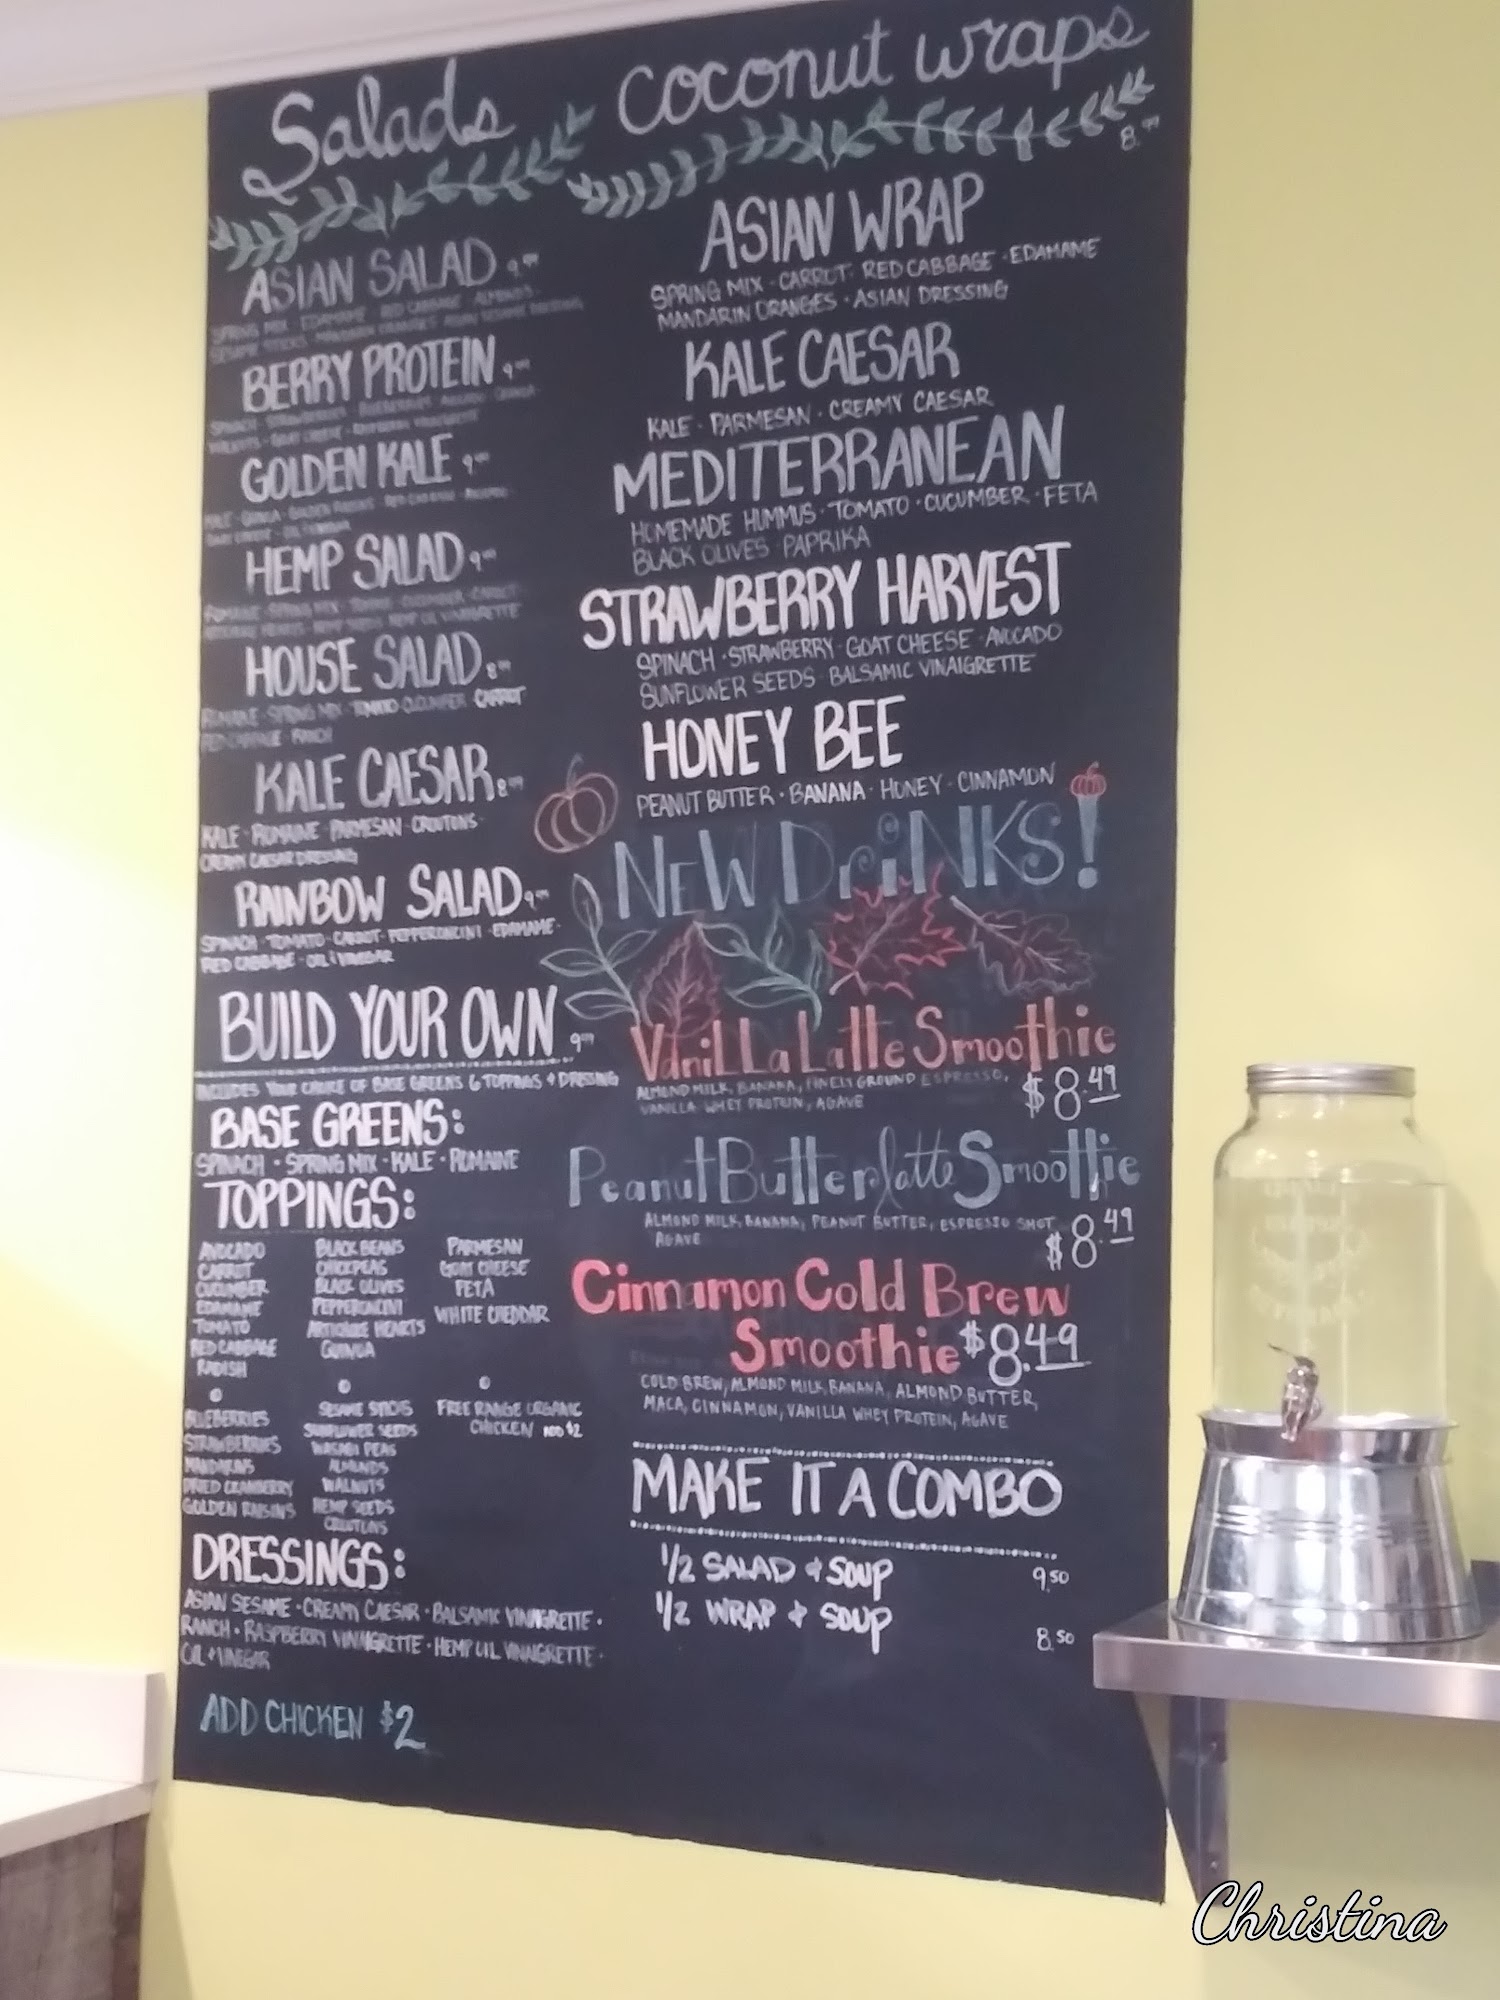 Salads
ASIAN SALAD 9.99
SPRING MIX · EDAMAME · RED CABBAGE · ALMONDS ·
SESAME STICKS · MANDARIN ORANGES · ASIAN SESAME DRESSING
BERRY PROTEIN 9.99
SPINACH · STRAWBERRIES · BLUEBERRIES · QUINOA ·
WALNUTS · GOAT CHEESE · RASPBERRY VINAIGRETTE
GOLDEN KALE 9.99
KALE · QUINOA · GOLDEN RAISINS ·
GOAT CHEESE · OIL & VINEGAR
HEMP SALAD 9.99
ROMAINE · SPRING MIX · CARROT ·
HEMP SEEDS · HEMP OIL VINAIGRETTE
HOUSE SALAD 8.99
ROMAINE · SPRING MIX · TOMATO · CUCUMBER · CARROT
RED CABBAGE · RANCH
KALE CAESAR 8.99
KALE · ROMAINE · PARMESAN · CROUTONS ·
CREAMY CAESAR DRESSING
RAINBOW SALAD 9.99
SPINACH · TOMATO · CARROT · PEPPERONCINI · EDAMAME ·
RED CABBAGE · OIL & VINEGAR
BUILD YOUR OWN 9.99
INCLUDES YOUR CHOICE OF BASE GREENS 6 TOPPINGS & DRESSING
BASE GREENS:
SPINACH · SPRING MIX · KALE · ROMAINE
TOPPINGS:
AVOCADO BLACK BEANS PARMESAN
CARROT CHICKPEAS GOAT CHEESE
CUCUMBER BLACK OLIVES FETA
EDAMAME PEPPERONCINI WHITE CHEDDAR
TOMATO ARTICHOKE HEARTS
RED CABBAGE QUINOA
RADISH
BLUEBERRIES SESAME STICKS FREE RANGE ORGANIC
STRAWBERRIES SUNFLOWER SEEDS CHICKEN ADD $2
MANDARINS WASABI PEAS
DRIED CRANBERRY ALMONDS
GOLDEN RAISINS WALNUTS
HEMP SEEDS
CROUTONS
DRESSINGS:
ASIAN SESAME · CREAMY CAESAR · BALSAMIC VINAIGRETTE ·
RANCH · RASPBERRY VINAIGRETTE · HEMP OIL VINAIGRETTE ·
OIL & VINEGAR
ADD CHICKEN $2
coconut wraps
8.99
ASIAN WRAP
SPRING MIX · CARROT · RED CABBAGE · EDAMAME
MANDARIN ORANGES · ASIAN DRESSING
KALE CAESAR
KALE · PARMESAN · CREAMY CAESAR
MEDITERRANEAN
HOMEMADE HUMMUS · TOMATO · CUCUMBER · FETA
BLACK OLIVES · PAPRIKA
STRAWBERRY HARVEST
SPINACH · STRAWBERRY · GOAT CHEESE · AVOCADO
SUNFLOWER SEEDS · BALSAMIC VINAIGRETTE
HONEY BEE
PEANUT BUTTER · BANANA · HONEY · CINNAMON
NEW DRiNKS!
Vanilla Latte Smoothie
ALMOND MILK, BANANA, FINELY GROUND ESPRESSO,
VANILLA WHEY PROTEIN, AGAVE
$8.49
Peanut Butter latte Smoothie
ALMOND MILK, BANANA, PEANUT BUTTER, ESPRESSO SHOT
AGAVE
$8.49
Cinnamon Cold Brew
Smoothie $8.49
COLD BREW, ALMOND MILK, BANANA, ALMOND BUTTER,
MACA, CINNAMON, VANILLA WHEY PROTEIN, AGAVE
MAKE IT A COMBO
1/2 SALAD & SOUP 9.50
1/2 WRAP & SOUP 8.50
Christina